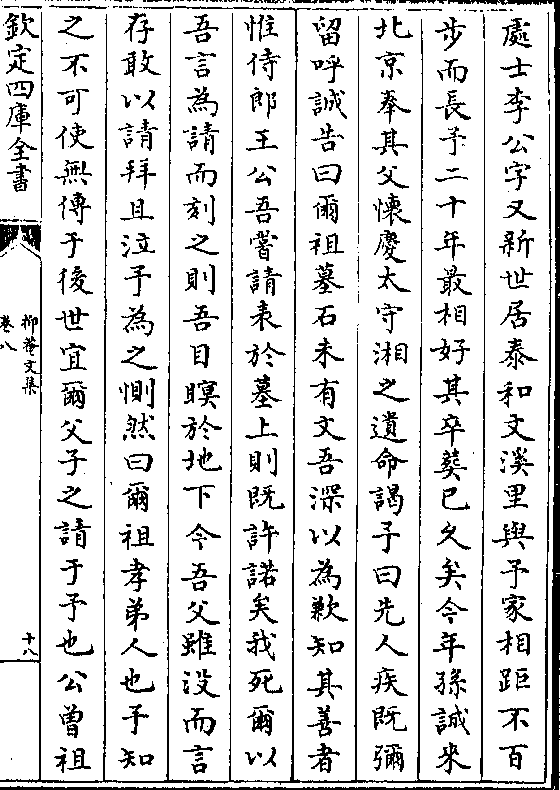 處士李公字又新世居泰和文溪里與予家相距不百
步而長予二十年最相好其卒葬已久矣今年孫誠來
北京奉其父懷慶太守湘之遺命謁予曰先人疾既彌
留呼誠告曰爾祖墓石未有文吾深以為歉知其善者
惟侍郎王公吾嘗請表於墓上則既許諾矣我死爾以
吾言為請而刻之則吾目暝於地下今吾父雖没而言
存敢以請拜且泣予為之惻然曰爾祖孝弟人也予知
之不可使無傳于後世宜爾父子之請于予也公曾祖
欽定四庫全書
抑菴文集
卷八
十八